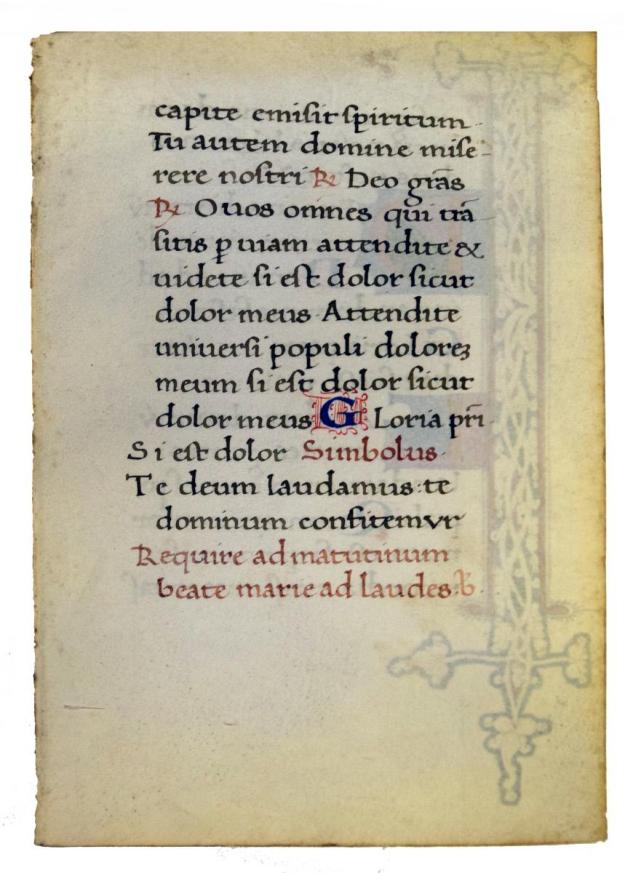 capite emisit spiritum
Tu autem domine mise-
rere nostri ℞ Deo gr̄as
℞ O uos omnes qui trā
sitis ꝑ uiam attendite &
uidete si est dolor sicut
dolor meus Attendite
uniuersi populi dolorēʒ
meum si est dolor sicut
dolor meus GLoria pr̄i
Si est dolor Simbolus
Te deum laudamus: te
dominum confitemur
Require ad matutinum
beate marie ad laudes.